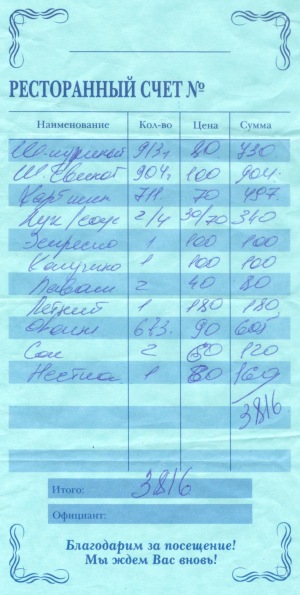 РЕСТОРАННЫЙ СЧЕТ №
Наименование Кол-во Цена Сумма
Ш-куриный 913г 80 730
Ш. Свиной 904г 100 904
Карт шин 711 70 497
Лук/соус 2/4 30/70 340
Эспрессо 1 100 100
Капучино 1 100 100
Лаваш 2 40 80
Летний 1 180 180
Овощи 673г. 90 605
Сок 2 60 120
Нестиа 1 160
3816
Итого: 3816
Официант:
Благодарим за посещение!
Мы ждем Вас вновь!